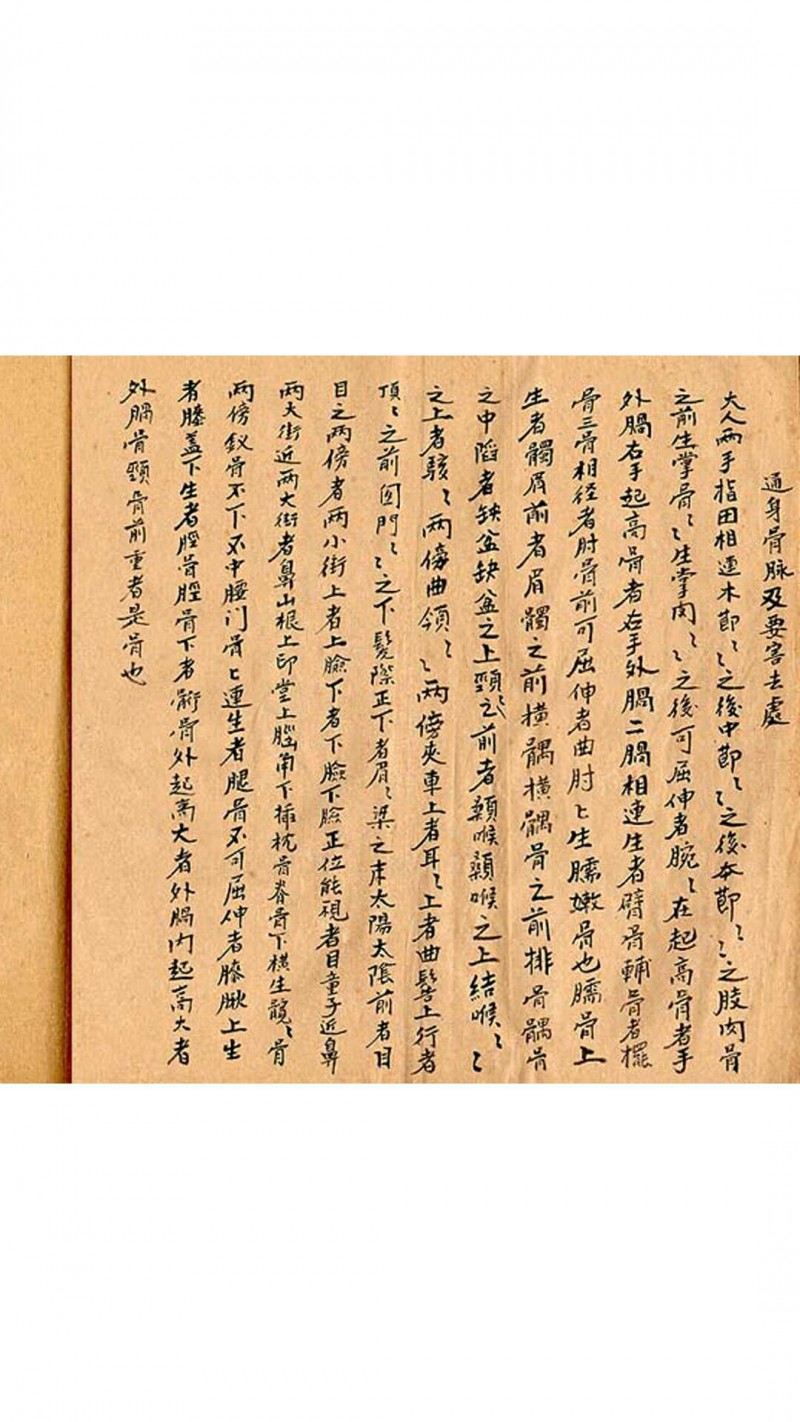 通身骨脉及要害去處
大人两手指田相連本節〻之後中節〻之後本節〻之肢肉骨
之前生掌骨〻生掌肉〻之後可屈伸者腕〻在起高骨者手
外腡右手起高骨者右手外腡二腡相連生者臂骨輔骨者擺
骨三骨相径者肘骨前可屈伸者曲肘ヒ生臑嫩骨也臑骨上
生者髃肩前者肩髃之前横髃横髃骨之前排骨髃骨
之中陷者缺盆缺盆之上頸〻之前者顙喉顙喉之上結喉〻
之上者骇〻两傍曲頷〻两傍夾車上者耳〻上者曲鬓上行者
頂〻之前囟門〻之下髮際正下者眉〻梁之末太陽太陰前者目
目之两傍者两小街上者上臉下者下臉下臉正位能視者目童子近鼻
两大街近两大街者鼻山根上印堂上腦角下掽枕骨脊骨下横生髖〻骨
两傍釵骨不下不中腰门骨ヒ連生者腿骨不可屈伸者膝膕上生
者膝盖下生者脛骨脛骨下者䯒骨外起高大者外腡内起高大者
外腡骨頸骨前重者是骨也